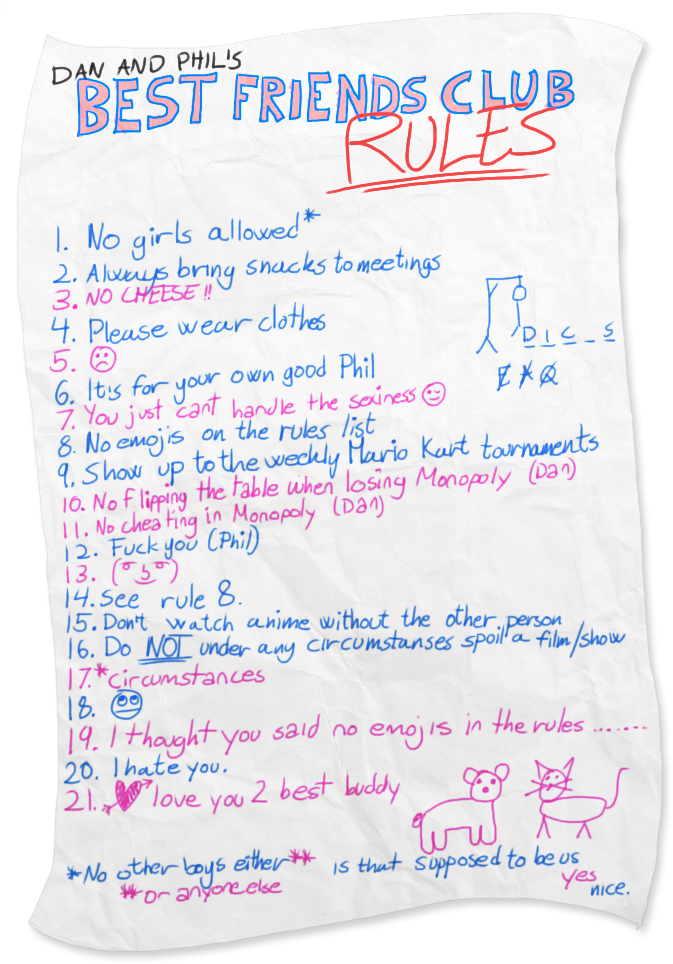 DAN AND PHIL'S
BEST FRIENDS CLUB
RULES
1. No girls allowed*
2. Always bring snacks to meetings
3. NO CHEESE!!
4. Please wear clothes
5. ☹
6. It's for your own good Phil
7. You just can't handle the sexiness 😉
8. No emojis on the rules list
9. Show up to the weekly Mario Kart tournaments
10. No flipping the table when losing Monopoly (Dan)
11. No cheating in Monopoly (Dan)
12. Fuck you (Phil)
13. ( ͡° ͜ʖ ͡°)
14. See rule 8.
15. Don't watch anime without the other person
16. Do NOT under any circumstanses spoil a film/show
17. *circumstances
18. 🙄
19. I thought you said no emojis in the rules .......
20. I hate you.
21. 💘 love you 2 best buddy
D I C _ S
E A Q
*No other boys either**
**or anyone else
is that supposed to be us
yes
nice.